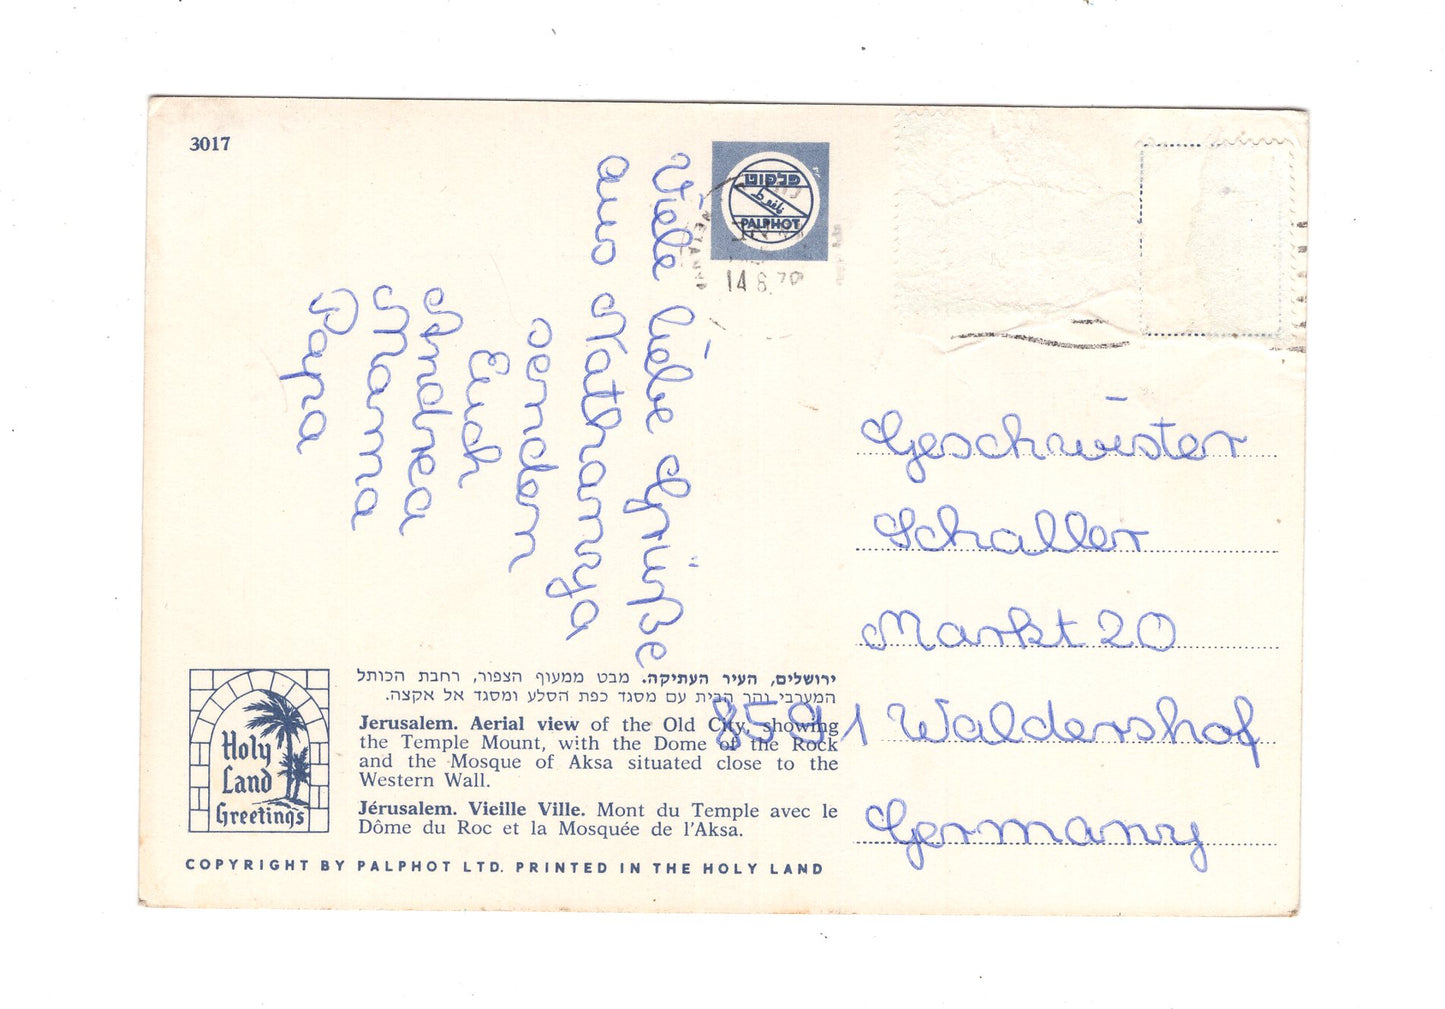 3017
פלפוט
PALPHOT
NETANYA
14 6. 79
Viele liebe Grüße
aus Nathanya
senden
Euch
Andrea
Mama
Papa
Geschwister
Schaller
Markt 20
8591 Waldershof
Germany
ירושלים, העיר העתיקה. מבט ממעוף הצפור, רחבת הכותל
המערבי והר הבית עם מסגד כפת הסלע ומסגד אל אקצה.
Jerusalem. Aerial view of the Old City, showing
the Temple Mount, with the Dome of the Rock
and the Mosque of Aksa situated close to the
Western Wall.
Jérusalem. Vieille Ville. Mont du Temple avec le
Dôme du Roc et la Mosquée de l'Aksa.
Holy
Land
Greetings
COPYRIGHT BY PALPHOT LTD. PRINTED IN THE HOLY LAND